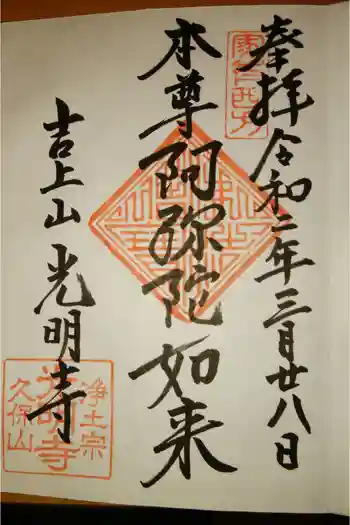 奉拝令和二年三月廿八日
本尊阿弥陀如来
吉上山光明寺
浄土宗
光明寺
久保山